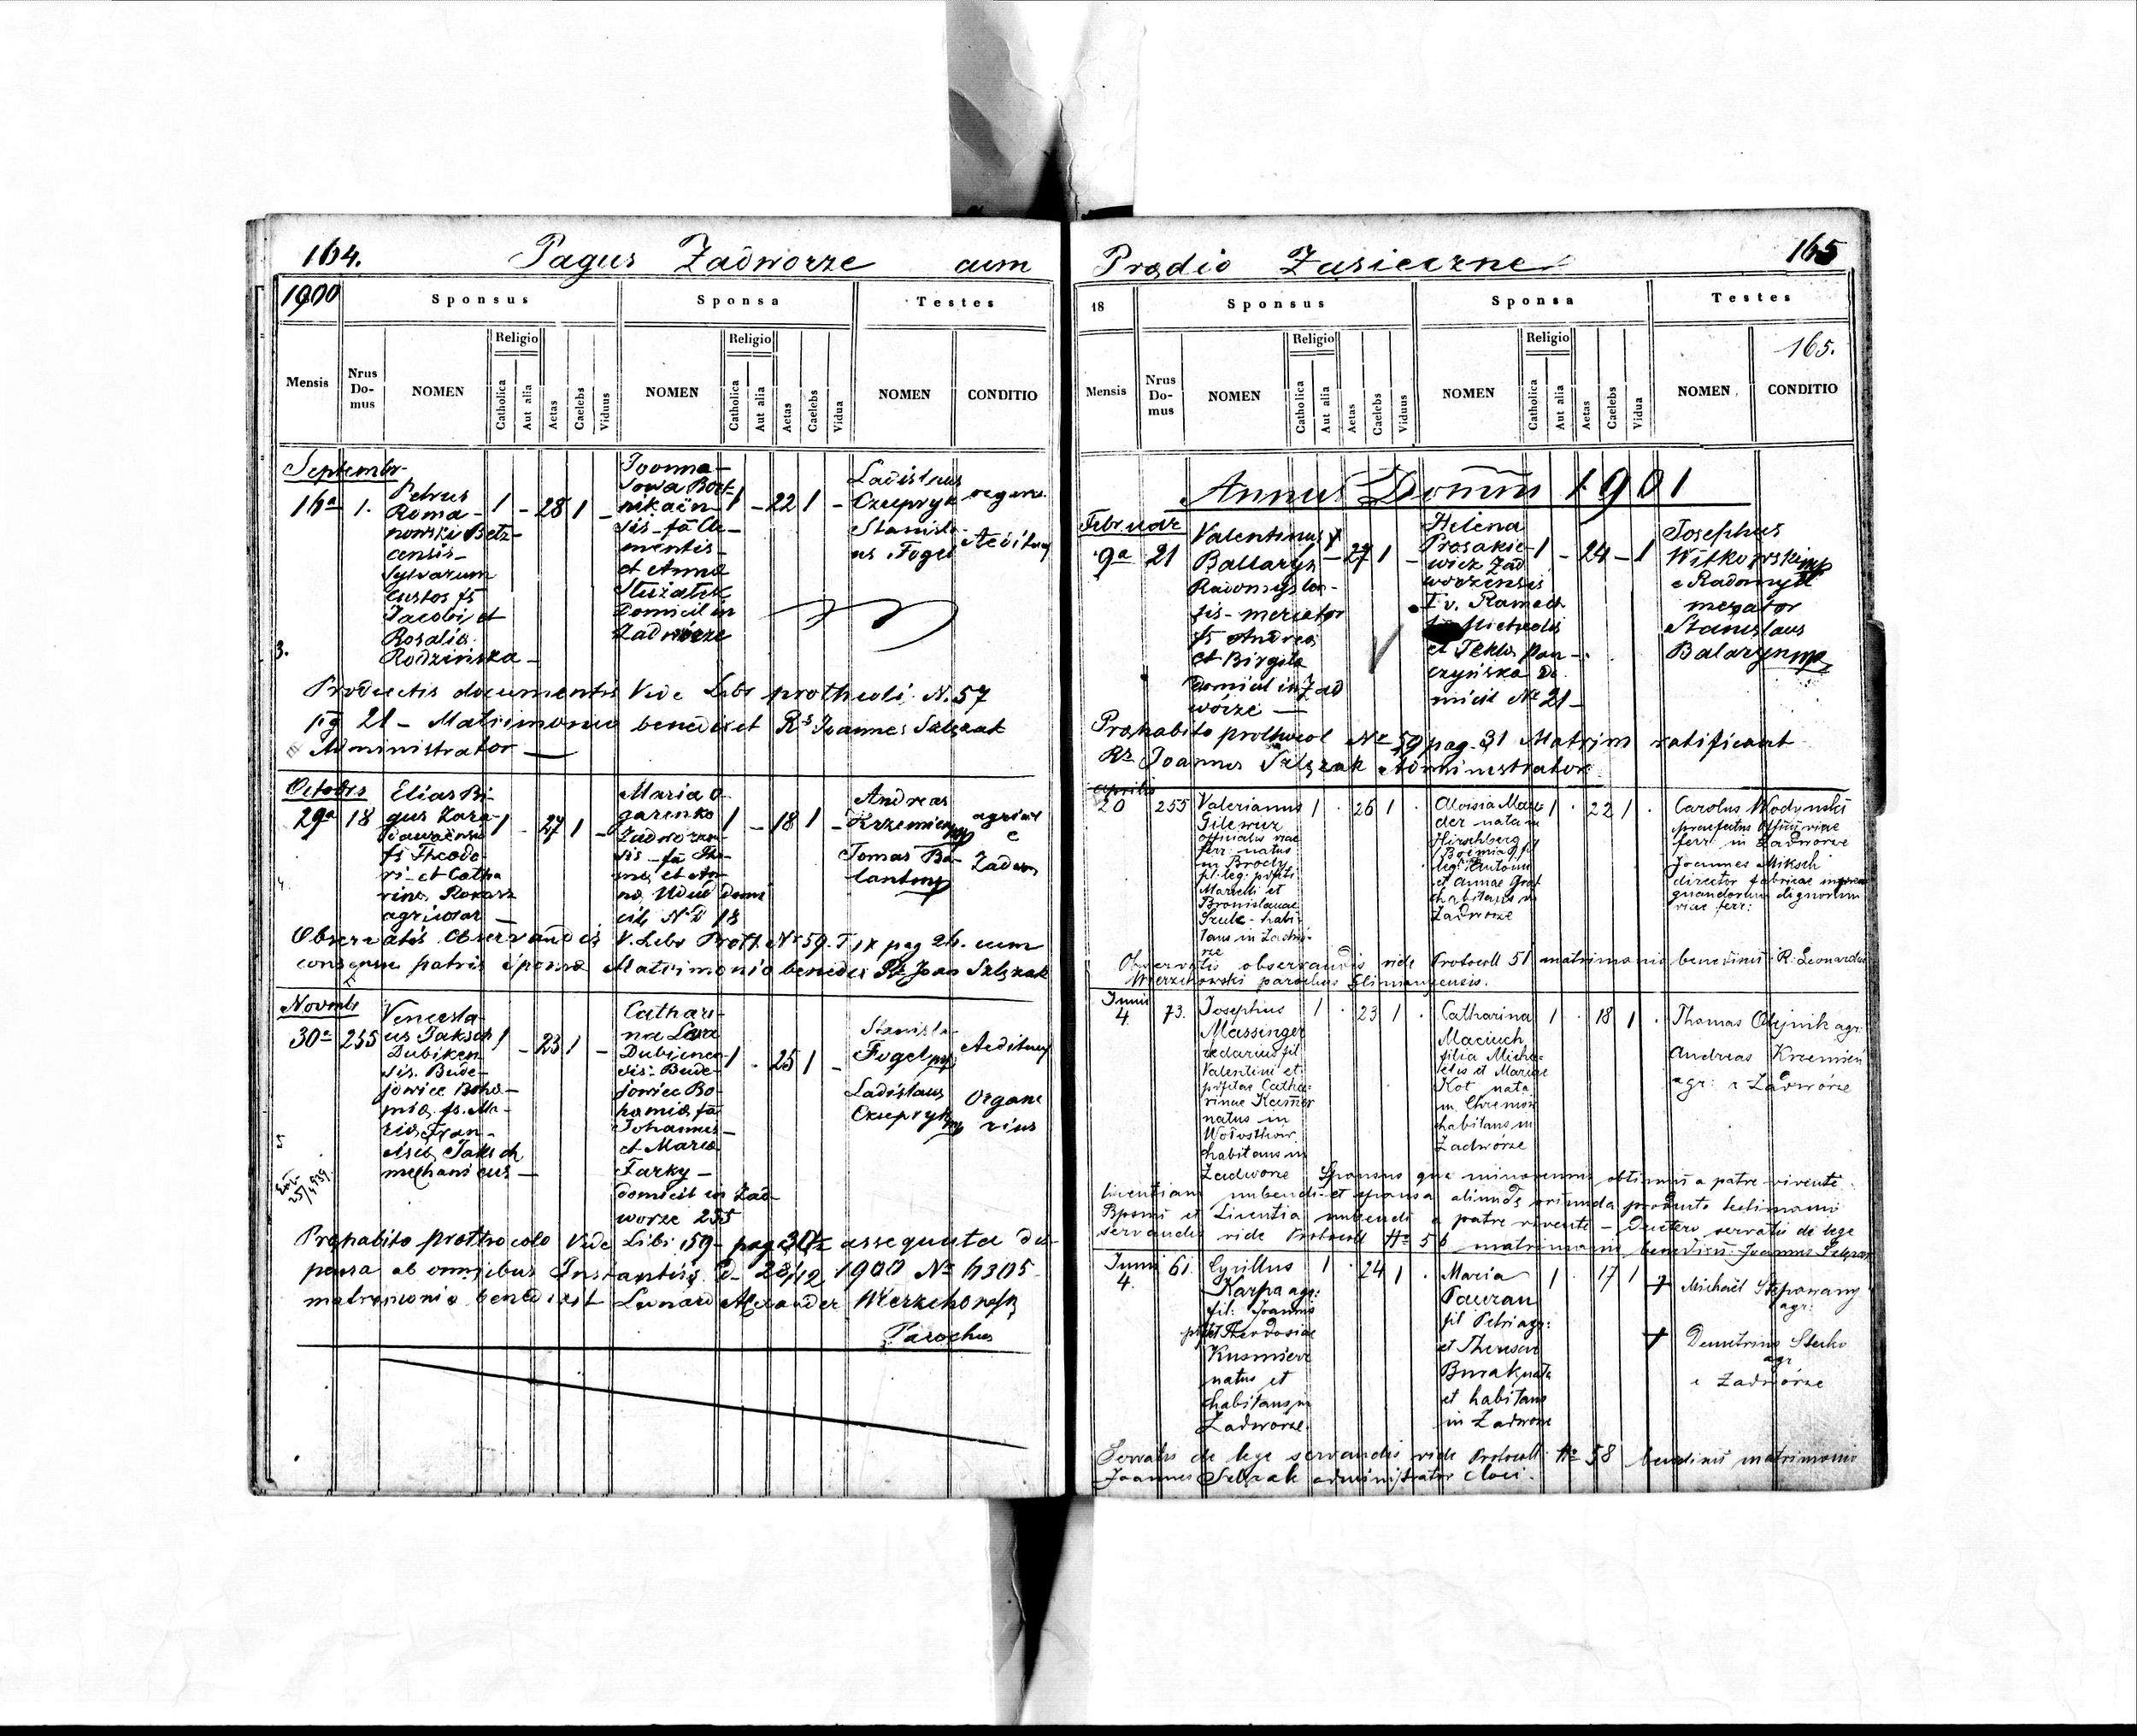 164.
Pagus Zadworze cum
1900
Sponsus
Sponsa
Testes
Religio
Religio
Mensis
Nrus Do- mus
NOMEN
Catholica
Aut alia
Aetas
Caelebs
Viduus
NOMEN
Catholica
Aut alia
Aetas
Caelebs
Vidua
NOMEN
CONDITIO
Septembr
16a
1.
Petrus
Roma-
nowski Betz-
censis-
Sylvarum
Custos fs
Jacobi et
Rosalia
Rodzińska-
1 - 28 1 -
Joanna
mentis-
et Anna
Domicil in
Zadworze
1 - 22 1 -
Ladislaus
Czupryk
Stanisla-
us Fogel
Aedituus
3.
Productis documentis Vide Libr prothcoli N. 57
pg 21 - Matrimonio benedixit Rs Joannes Szlęzak
Administrator
Octobris
29a
18
Elias Bi-
gus Zara-
fs Theodo-
ri et Catha
rina
agricolar
1 - 27 1 -
Maria O-
garenko
Zadworzen
sis - fa Tho-
ma et An-
na
cil N 18
1 - 18 1 -
Andreas
Krzemień
Tomas Ba-
4.
Observatis observandis V. Libr Proth N 59. T IX pag 26. cum
consensu patris sponsa Matrimonio benedix Rs Joan Szlęzak
Novembr
30a
235
Vencesla-
us Jaksch
Dubiken
sis. Bude-
jowiec Bohe-
mia fs. Ma-
ria Fran-
cisca Jaksch
mechanicus
1 - 23 1 -
Cathari-
na
Dubienen
sis- Bude-
jowiec Bo-
hemia fa
Johannis
et Maria
Farky-
domicil in Zad-
worze 235
1 - 25 1 -
Stanisla-
Fogel mp
Ladislaus
Czupryk mp
Aedituus
Organa
rius
5
Præhabito prothocolo Vide Libr 59- pag 30 assequuta dis-
pensa ab omnibus Instantiis d. 28/12 1900 No 6305
matrimonio benedixit Leonard Alexander Wierzchowski
Parochus
Prædio Zasieczne
165
18
Sponsus
Sponsa
Testes
Religio
Religio
165.
Mensis
Nrus Do- mus
NOMEN
Catholica
Aut alia
Aetas
Caelebs
Viduus
NOMEN
Catholica
Aut alia
Aetas
Caelebs
Vidua
NOMEN
CONDITIO
Annus Domini 1901
Februar
9a
21
Valentinus
Ballaryn
Radomyslen-
sis- mercator
fs Andrea
et Birgita
domicil in Zad
worze
1 - 27 1 -
Helena
Prosakie-
wicz Zad
worzensis
et Tekla Pan-
czyńska do
micil No 21-
1 - 24 - 1
Josephus
Witkowski mp
e Radomysl
mercator
Stanislaus
Balaryn mp
Præhabito prothocol No 59 pag. 31 Matrim ratificavit
Rs Joannes Szlęzak Administrator
Aprilis
20
255
Valerianus
Gilewicz
officialis viae
ferr. natus
in Brody
fil. leg.
Marcelli et
Bronislauae
Szulc - habi-
tans in Zadwó-
rze
1 . 26 1 .
Aloisia Mau-
der nata in
Hirschberg
/Boemia/ fil
leg. Antonii
et Annae Graf
habitans in
Zadworze
1 . 22 1 .
Carolus Wodynski
praefectus officii viae
ferr. in Zadworze
Joannes Miksch
director fabricae
guandorum lignorum
viae ferr:
Observatis observandis vide Protocoll 51 matrimonio benedixit R. Leonardus
Wierzchowski parochus Glinianensis.
Junii
4.
73.
Josephus
Massinger
redarius fil
Valentini et
Catha-
rinae Kammer
natus in
habitans in
Zadworze
1 . 23 1 .
Catharina
Maciuch
filia Micha-
elis et Mariae
Kot nata
in
habitans in
Zadwórze
1 . 18 1 .
Thomas Olejnik agr:
Andreas Krzemień
agr: e Zadwórze
Sponsus qua minorennis obtinuit a patre vivente
licentiam nubendi et sponsa aliunde oriunda producto testimonio
Bpomi et Licentia nubendi a patre vivente - Ceteris servatis de lege
servandis vide Protocoll No 56 matrimonio benedixit Joannes Szlęzak
Junii
4.
61.
Cyrillus
Karpa agr:
fil: Joannis
et Theodosiae
Kusmierz
natus et
habitans in
Zadworze
1 . 24 1 .
Maria
Pauzan
fil Petri agr:
et Theresiae
Burak nata
et habitans
in Zadworze
1 . 17 1
+ Michaël Stepowany
agr:
+ Demetrius Stecko
agr
e Zadwórze
Servatis de lege servandis vide Protocoll No 58 benedixit matrimonio
Joannes Szlęzak administrator loci.